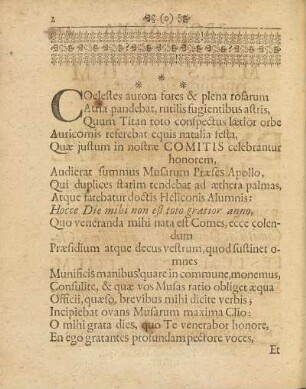 2 (o)
COelestes aurora fores & plena rosarum
Atria pandebat, rutilis fugientibus astris,
Quum Titan toto conspectus lætior orbe
Auricomis referebat equis natalia festa,
Quæ justum in nostræ COMITIS celebrantur
honorem,
Audierat summus Musarum Præses Apollo,
Qui duplices statim tendebat ad æthera palmas,
Atque fatebatur doctis Heliconis Alumnis:
Hocce Die mihi non est toto gratior anno,
Quo veneranda mihi nata est Comes, ecce colen-
dum
Præsidium atque decus vestrum, quod sustinet o-
mnes
Munificis manibus! quare in commune, monemus,
Consulite, & quæ vos Musas ratio obliget æqua
Officii, quæso, brevibus mihi dicite verbis;
Incipiebat ovans Musarum maxima Clio:
O mihi grata dies, quo Te venerabor honore,
En ego gratantes profundam pectore voces,
Et